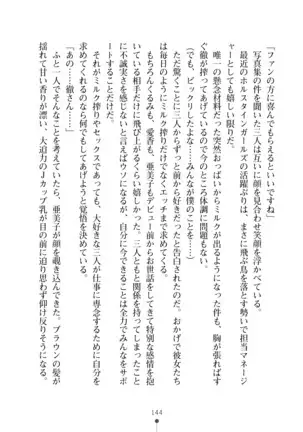 「ファンの方に喜んでもらえるといいですね」
写真集の件を、三人は互いに顔を見合わせ笑顔する。
最近のホルスタインガールズの活躍ぶりは、まさに飛ぶ鳥を落とす勢いで担当マネージ
ャーとしても嬉しい限りだ。
唯一の懸念材料だった突然おっぱいからミルクが出るようになった件も、胸が張れば
ぐ徹が搾ってあげているので今のところ体調に問題もない。
（でも、ビックリしたな……みんなが僕のことを……）
ただ驚くことに三人から二ヶ月ほど前から好きだったと告白されたのだ。おかげで彼女たち
は毎日のように、ミルク搾りだけでなくエッチまで求めてくる。
もちろんくるみも、愛香も、亜美子もデビュー前からお世話をしてきて特別な感情を抱
いていた相手だけに飛び上がりたいくらい嬉しい。三人ともと関係を持つ
に不誠実さを感じないと言えばウソになるが、自分に今できることは全力でみんなをサポ
ートすること。
それがミルク搾りやセックスであっても、大好きな三人が仕事に専念するために自分を
求めてくれるのなら何でもしてあげようと覚悟を決めていた。
「あの……徹さん」
と、一人でそんなことを考えていたら、亜美子が顔を覗き込んできた。ブラウンの髪が
揺れて甘い香りが漂い、大迫力のＪカップ乳が目の前に迫り思わず仰け反りそうになる。
144